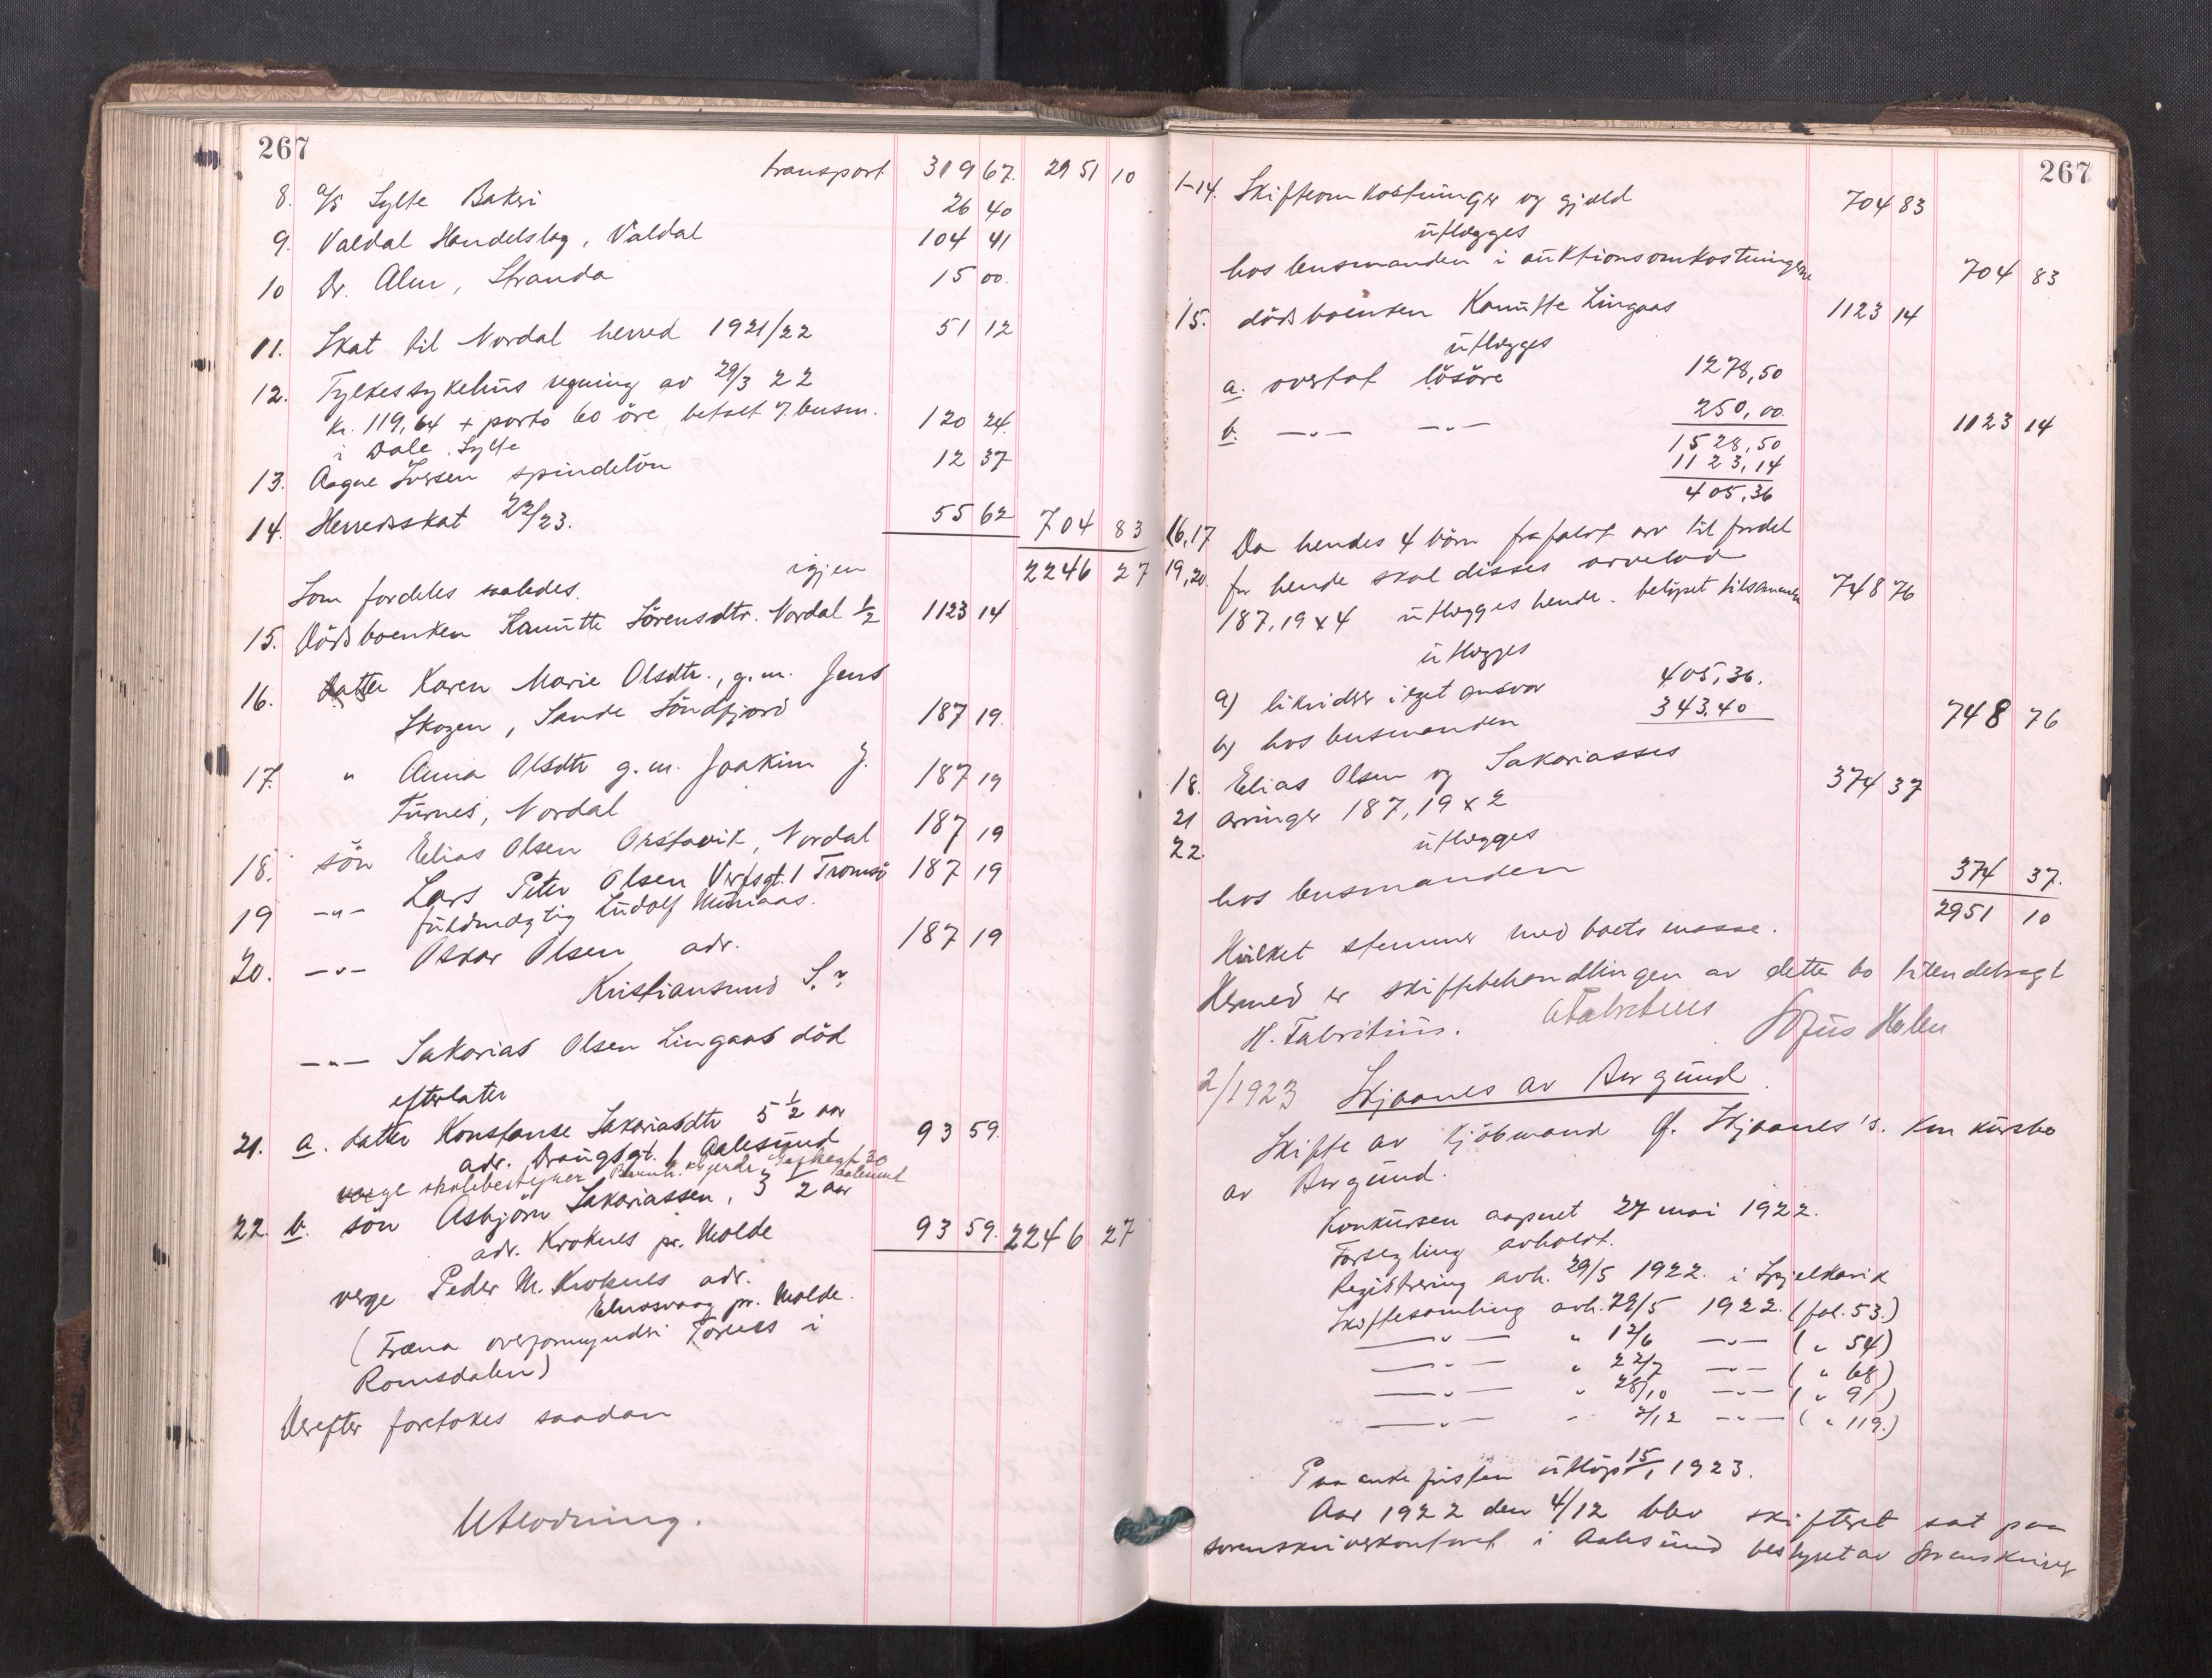 267
transport 319 67. 2951 10
8. A/S Sylte Bakeri 26 40
9. Valdal Handelslag, Valdal 104 41
10 Dr. Alm, Stranda 15 00.
11. Skat til Nordal herred 1921/22 51 12
12. Fylkessykehus regning av 29/3 22
kr. 119,64 + porto 60 öre betalt
i Dale, Sylte 120 24.
13. Aagne Iversen spindelön 12 37
14. Herredsskat 22/23. 55 62 704 83
igjen 2246 27
Som fordeles saaledes.
15. Dödsboenken Kanutte Sörensdtr. Nordal ½ 1123 14
16. Datter Karen Marie Olsdtr., g.m. Jens
Skogen, Sande Söndfjord 187 19.
17. " Anna Olsdtr g.m. Joakim J.
Furnes, Nordal 187 19
18. sön Elias Olsen Overavik, Nordal 187 19
19 -"- Lars Peter Olsen Verfsgt. 1 Tromsö 187 19
fuldmægtig Ludolf
20. -"- Oskar Olsen adr. 187 19
Kristiansund S.?
-"- Sakarias Olsen Lingaas död
efterlater
21. a. datter Konstanse Sakariasdtr 5½ aar 93 59.
adr. Aalesund
verge skolebestyrer 20 Aalesund
22. b. sön Asbjörn Sakariassen, 3½ aar
adr. Kroknes pr. Molde 93 59. 2246 27
verge Peder M. Kroknes adr.
Elnesvaag pr. Molde.
(Fræna overformynderi i
Romsdalen)
Derefter foretokes saadan
Utlodning.
267
1-14. Skifteomkostninger og gjæld 704 83
utlægges
hos lensmanden i auktionsomkostningerne 704 83
15. dödsboenken Kanutte Lingaas 1123 14
utlægges
a. overtat lösöre 1278,50
b. -"- -"- 250,00. 1123 14
1528,50
1123,14
405,36
16,17 Da hendes 4 börn frafaldt arv til fordel
19,20. for hende skal disses arvelod
187,19 x 4 utlægges hende. belöpet tilsammen 748 76
utlægges
a) likvideres i eget ansvar 405,36.
b) hos lensmanden 343.40 748 76
18. Elias Olsen og Sakariasses 374 37
21 arvinger 187,19 x 2
22. utlægges
hos lensmanden 374 37.
2951 10
Hvilket stemmer med boets masse.
Hermed er skiftebehandlingen av dette bo tilendebragt
H. Fabritius. AFabritius Sofus Holen
2/1923 Skjaanes av Borgund.
Skifte av kjöbmand J. Skjaanes's. konkursbo
av Borgund.
Konkursen aapnet 27 mai 1922.
Forsegling avholdt.
Registrering avh. 29/5 1922. i Spjelkavik
Skiftesamling avh. 29/5 1922. (fol. 53.)
-"- " 12/6 -"- ( " 54)
-"- " 22/7 -"- ( " 68)
-"- " 28/10 -"- ( " 91)
-"- " 2/12 -"- ( " 119.)
Paaankefristen utlöp 15/1 1923.
Aar 1922 den 4/12 blev skifteret sat paa
sorenskriverkontoret i Aalesund bestyret av sorenskriver